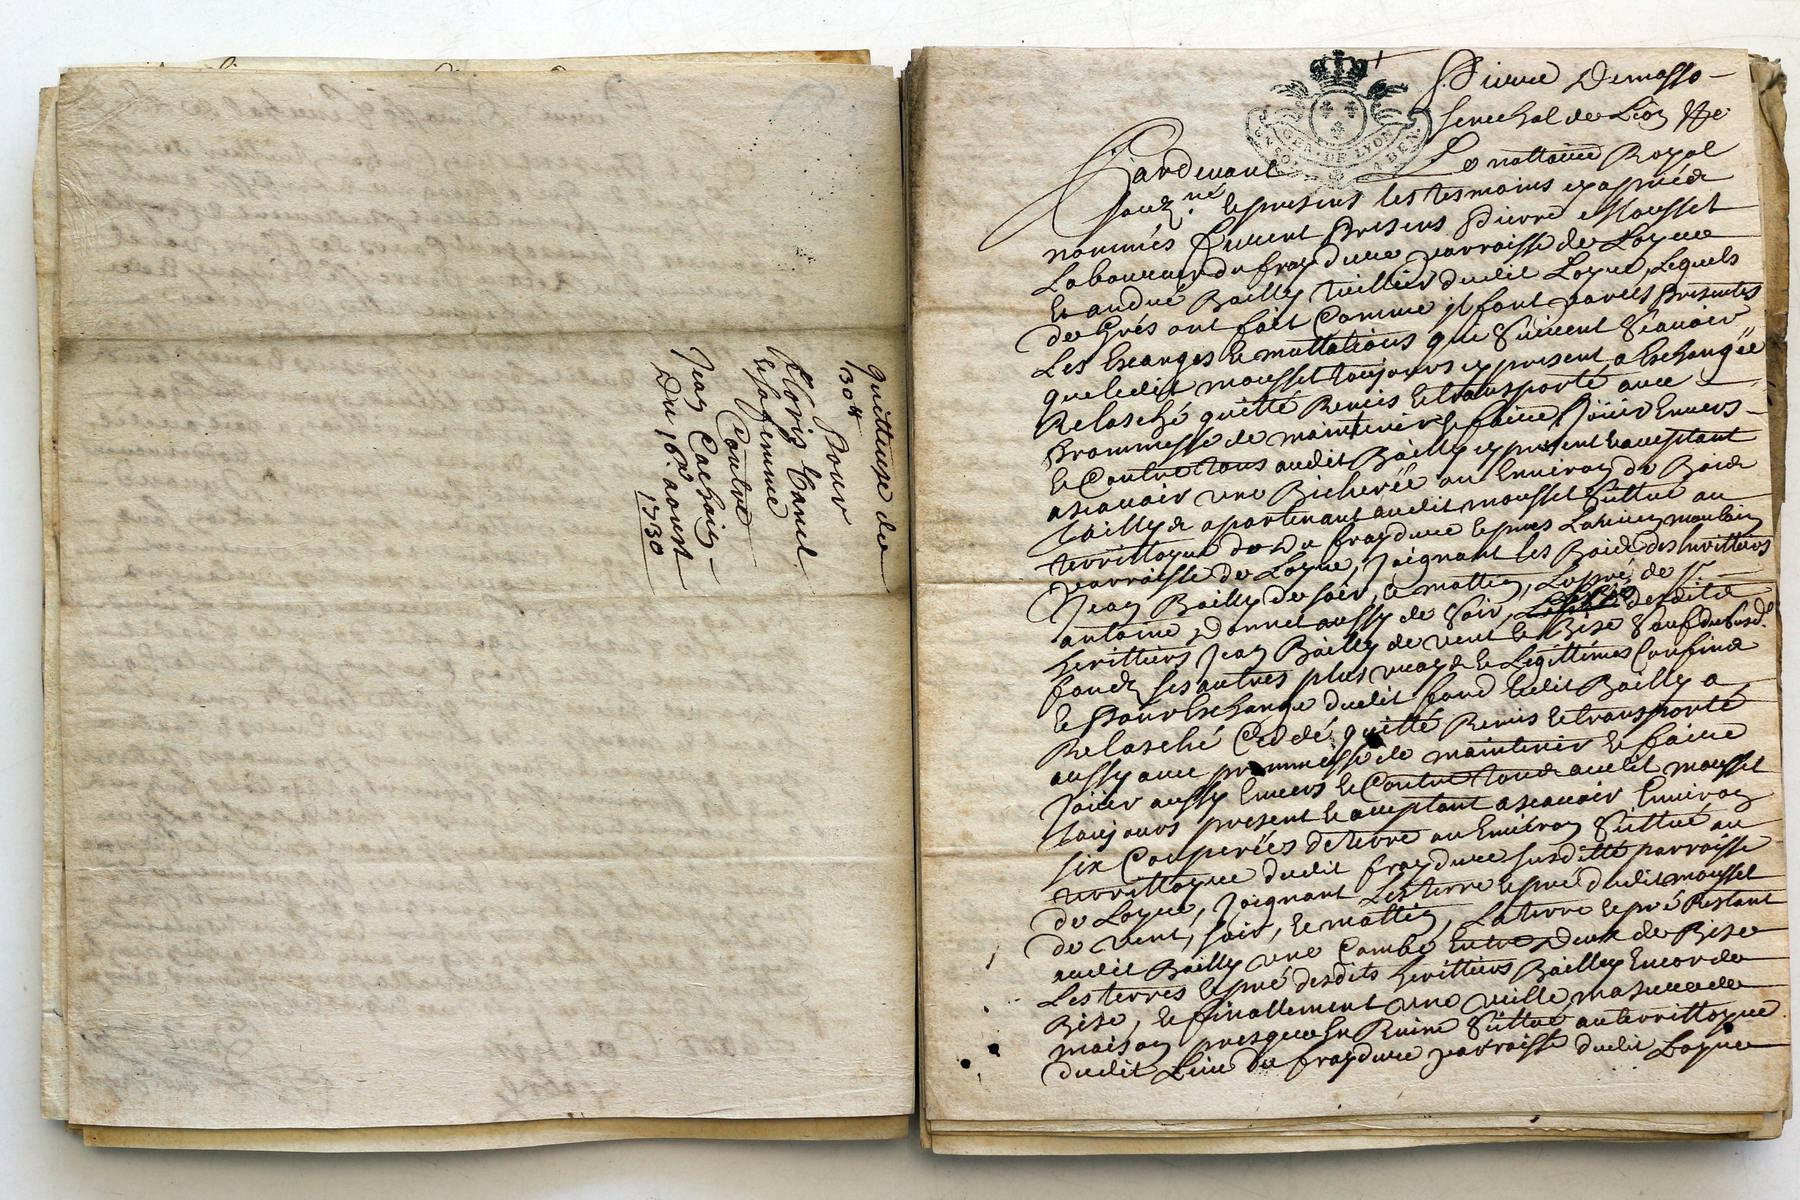 quittance de
130#
pour
Cloris Canel
sa femme
Contre
Jean Cachoin
Du 16e. aoust
1730
Pierre Demasso
senechal de Lion &c
GEN. DE LYON
Pardevant Le nottaire Royal
souz.né & presens les tesmoins cy apprés
nommés furent presens Pierre Mousset
Laboureur du frayduire parroisse de Loyre
& andré Bailly tuillier dudit Loyre, lequels
de Grés ont fait Comme jl font par ces presentes
Les Exanges & muttations qui suivent sçauoir
que ledit mousset toujours cy present a Eschangée
Relasché quitté Remis & transporté auec
Prommesse de maintenir & faire Joüir Enuers
& Contre tous audit Bailly cy present & acceptant
ascauoir une Bicherée ou Enuiron de Bois
taillys apartenant audit mousset Sittué au
territtoyre de du frayduire & pres
parroisse de Loyre, Joignant les Bois des herittiers
Jean Bailly de soir, & mattin, Le pré de Sr.
antoine Donnet aussy de soir, desdits
herittiers Jean Bailly de vent & Bise Sauf
fonds ses autres plus vrays & Legittimes Confins
& Pour Eschange dudit fond ledit Bailly a
Relasché Ceddé quitté Remis & transporté
aussy auec prommesse de maintenir & faire
Joüir aussy Enuers & Contre tous audit mousset
toujours present & acceptant ascauoir Enuiron
six Couperées de terre ou Enuiron Sittué au
territtoyre dudit frayduire susditte parroisse
de Loyre, Joignant Les terre & pré dudit mousset
de vent, soir, & mattin, La terre & pré Restant
audit Bailly une Combe Entre Deux de Bise
Les terres & pré desdits herittiers Bailly Encor de
Bise, & finallement une vieille masure de
maison presque En Ruine Sittué au territtoyre
dudit Lieu du frayduire parroisse dudit Loyre